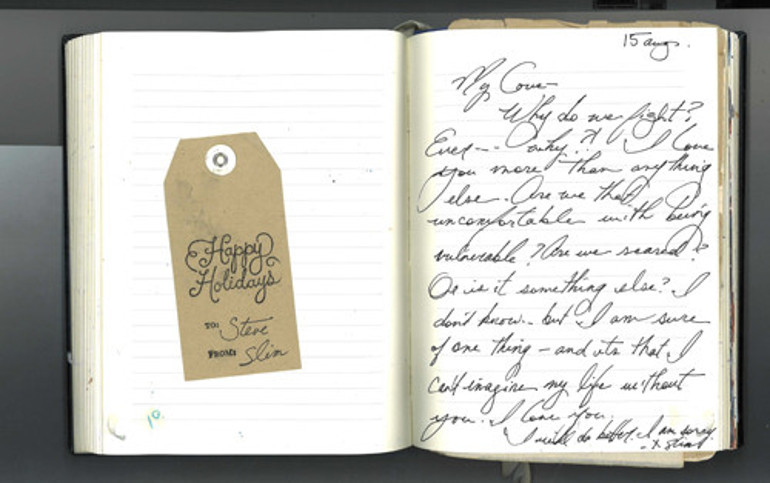 Happy
Holidays
TO: Steve
FROM: Slim
10
15 aug.
My Love—
Why do we fight?
Ever -- why?! I love
you more than anything
else. Are we that
uncomfortable with being
vulnerable? Are we scared?
Or is it something else? I
don't know.. but I am sure
of one thing – and its that I
can't imagine my life without
you. I love you.
I will do better. I am sorry.
- x